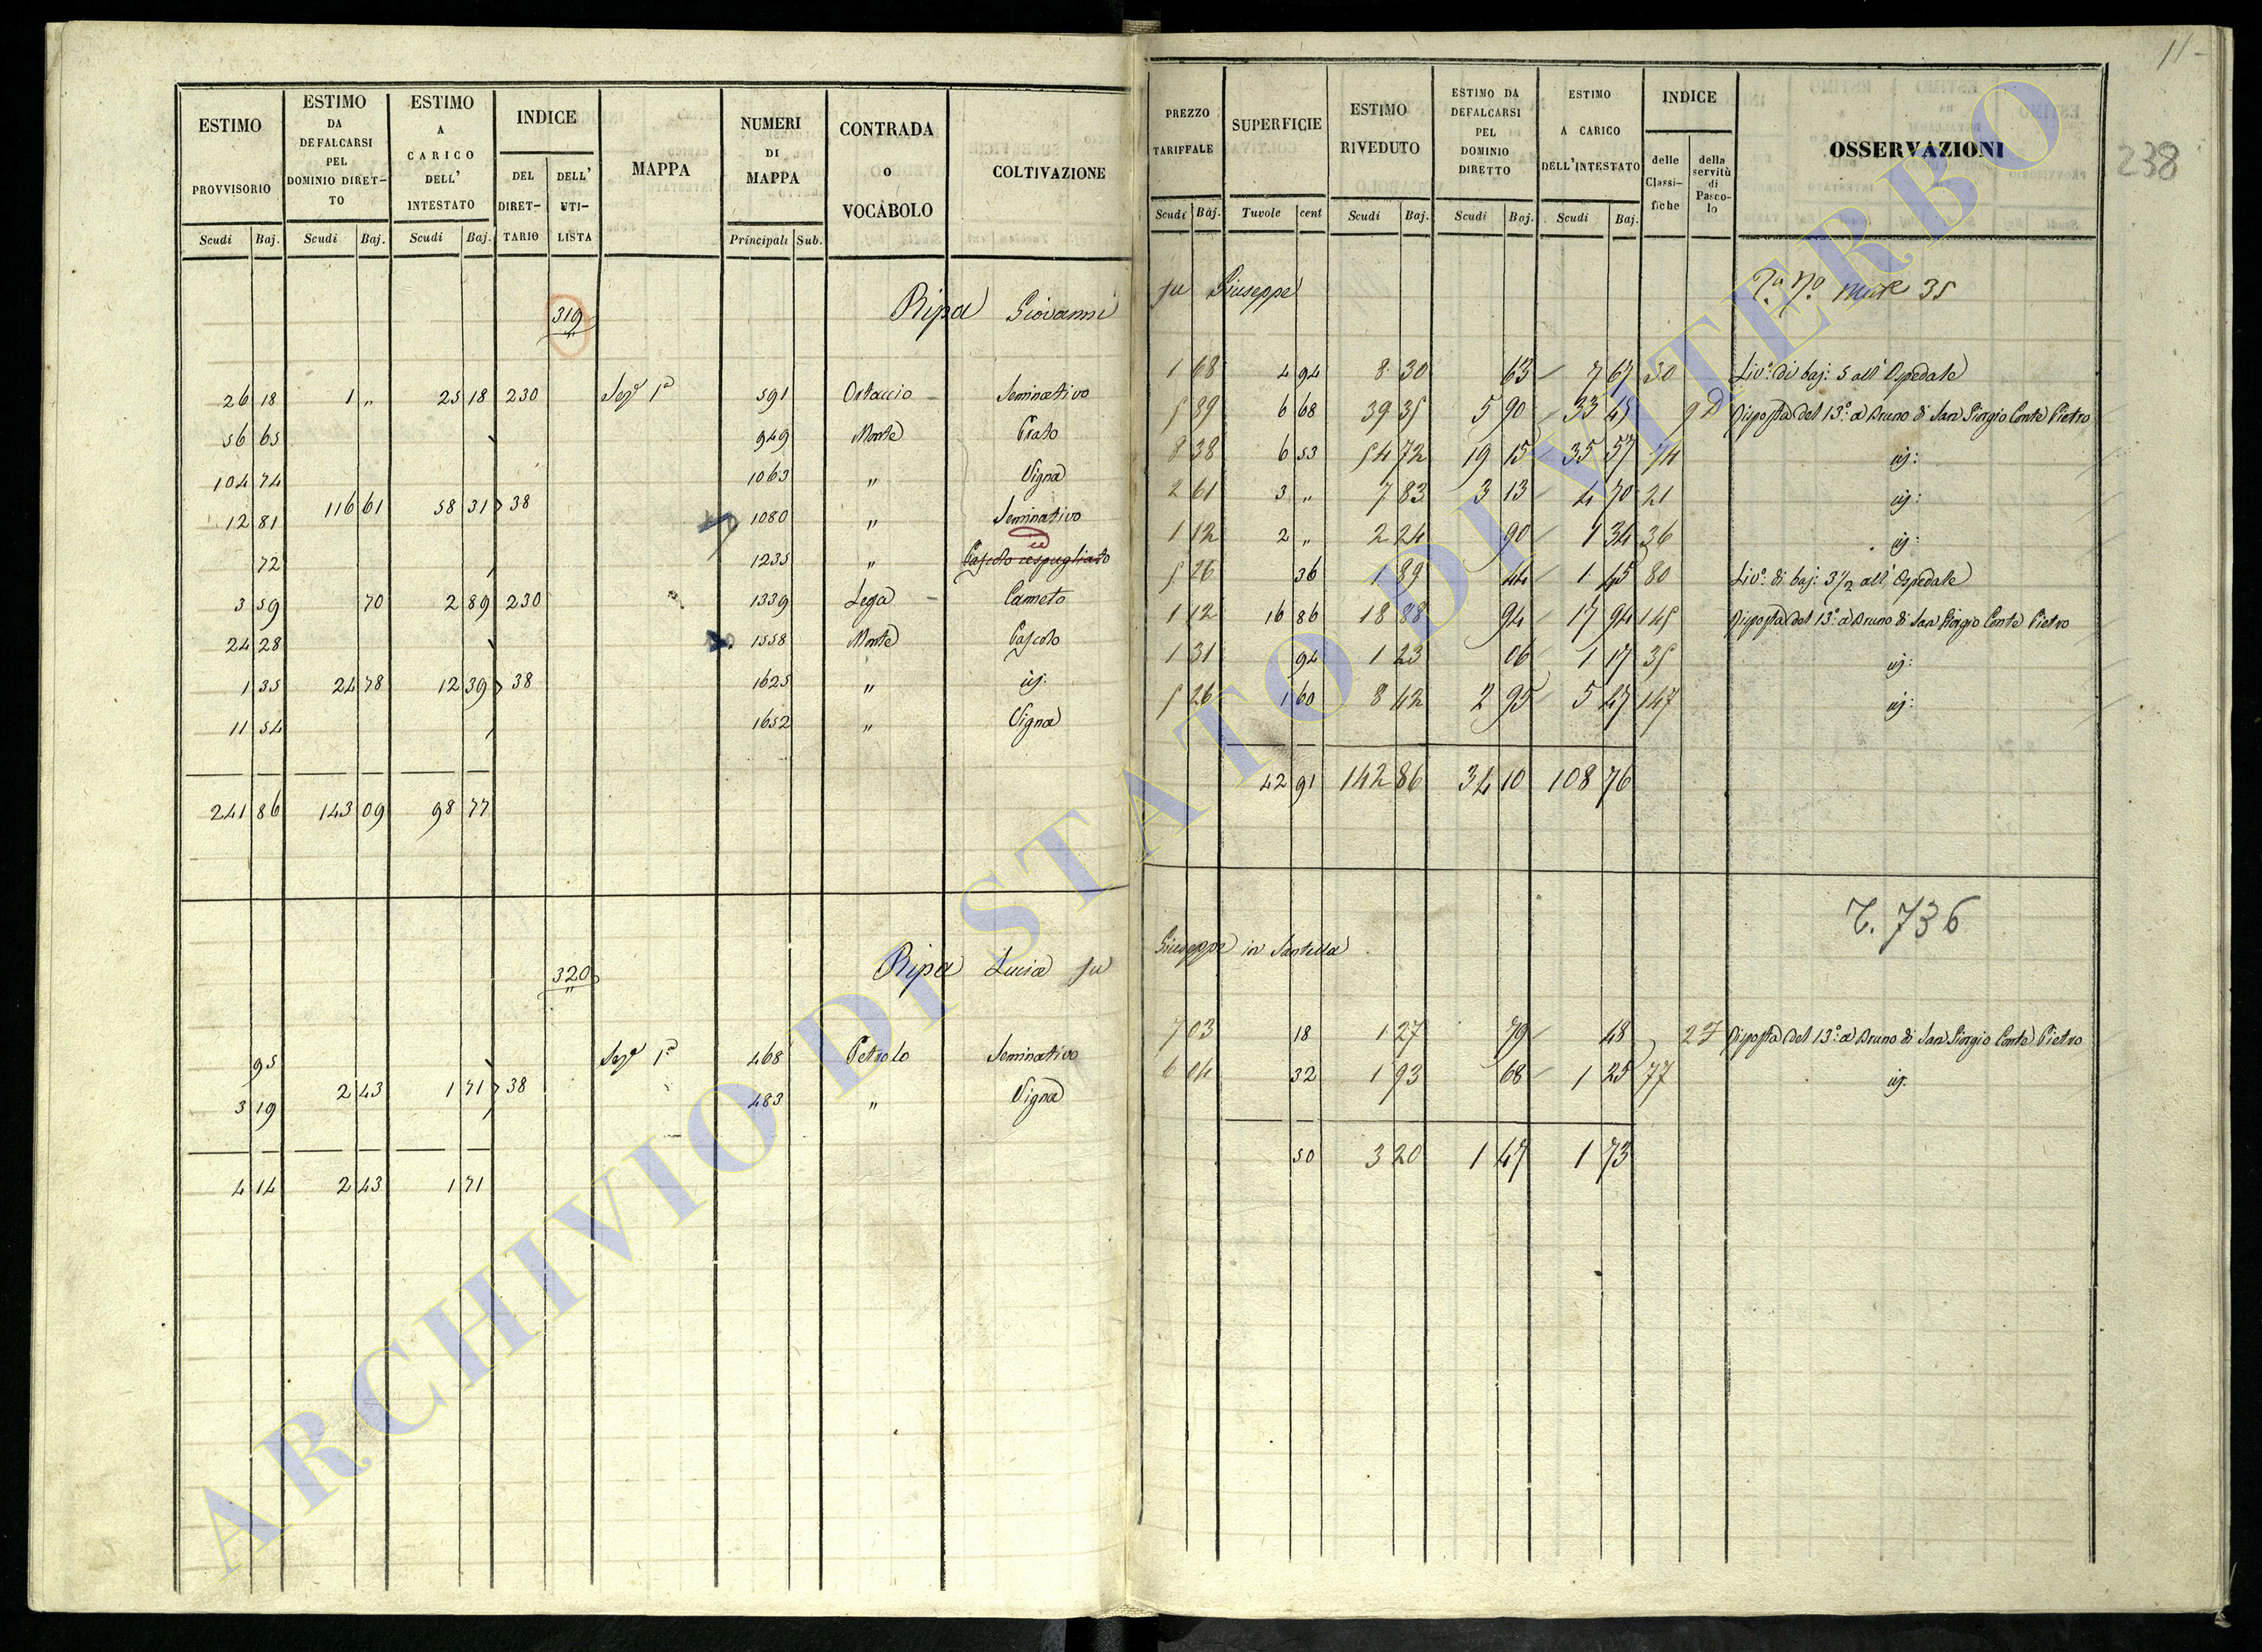 11-
238
ESTIMO PROVVISORIO | ESTIMO DA DEFALCARSI PEL DOMINIO DIRET-TO | ESTIMO A CARICO DELL' INTESTATO | INDICE | MAPPA | NUMERI DI MAPPA | CONTRADA O VOCABOLO | COLTIVAZIONE | PREZZO TARIFFALE | SUPERFICIE | ESTIMO RIVEDUTO | ESTIMO DA DEFALCARSI PEL DOMINIO DIRETTO | ESTIMO A CARICO DELL'INTESTATO | INDICE | OSSERVAZIONI
DEL DIRET-TARIO | DELL' UTI-LISTA | delle Classi-fiche | della servitù di Pasco-lo
Scudi | Baj. | Scudi | Baj. | Scudi | Baj. | Principali | Sub. | Scudi | Baj. | Tavole | cent | Scudi | Baj. | Scudi | Baj. | Scudi | Baj.
319 Ripa Giovanni fu Giuseppe 35
26 18 | 1 „ | 25 18 | 230 | Sez.e 1a | 591 | Ortaccio | Seminativo | 1 68 | 4 94 | 8 30 | 63 | 7 67 | 30 | Liv.o di baj: 5 all' Ospedale
56 65 | 949 | Monte | Prato | 5 89 | 6 68 | 39 35 | 5 90 | 33 45 | 9 D | Risposta del 13.o a Bruno di San Giorgio Conte Pietro
104 74 | 1063 | „ | Vigna | 8 38 | 6 53 | 54 72 | 19 15 | 35 57 | 74 | id:
12 81 | 116 61 | 58 31 | 38 | 1080 | „ | Seminativo | 2 61 | 3 „ | 7 83 | 3 13 | 4 70 | 21 | id:
72 | 1235 | „ | Pascolo cespugliato | 1 12 | 2 „ | 2 24 | 90 | 1 34 | 36 | id:
3 59 | 70 | 2 89 | 230 | 1339 | Lega | Canneto | 5 26 | 36 | 1 89 | 44 | 1 45 | 80 | Liv.o di baj: 3 1/2 all' Ospedale
24 28 | 1558 | Monte | Pascolo | 1 12 | 16 86 | 18 88 | 94 | 17 94 | 145 | Risposta del 13.o a Bruno di San Giorgio Conte Pietro
1 35 | 24 78 | 12 39 | 38 | 1625 | „ | id: | 1 31 | 94 | 1 23 | 06 | 1 17 | 35 | id:
11 54 | 1652 | „ | Vigna | 5 26 | 1 60 | 8 42 | 2 95 | 5 47 | 147 | id:
241 86 | 143 09 | 98 77 | 42 91 | 142 86 | 34 10 | 108 76
320 Ripa Lucia fu Giuseppe in Santella 736
95 | Sez.e 1a | 468 | Petrolo | Seminativo | 7 03 | 18 | 1 27 | 79 | 48 | 27 | Risposta del 13.o a Bruno di San Giorgio Conte Pietro
3 19 | 2 43 | 1 71 | 38 | 483 | „ | Vigna | 6 04 | 32 | 1 93 | 68 | 1 25 | 77 | id.
4 14 | 2 43 | 1 71 | 50 | 3 20 | 1 47 | 1 73
ARCHIVIO DI STATO DI VITERBO